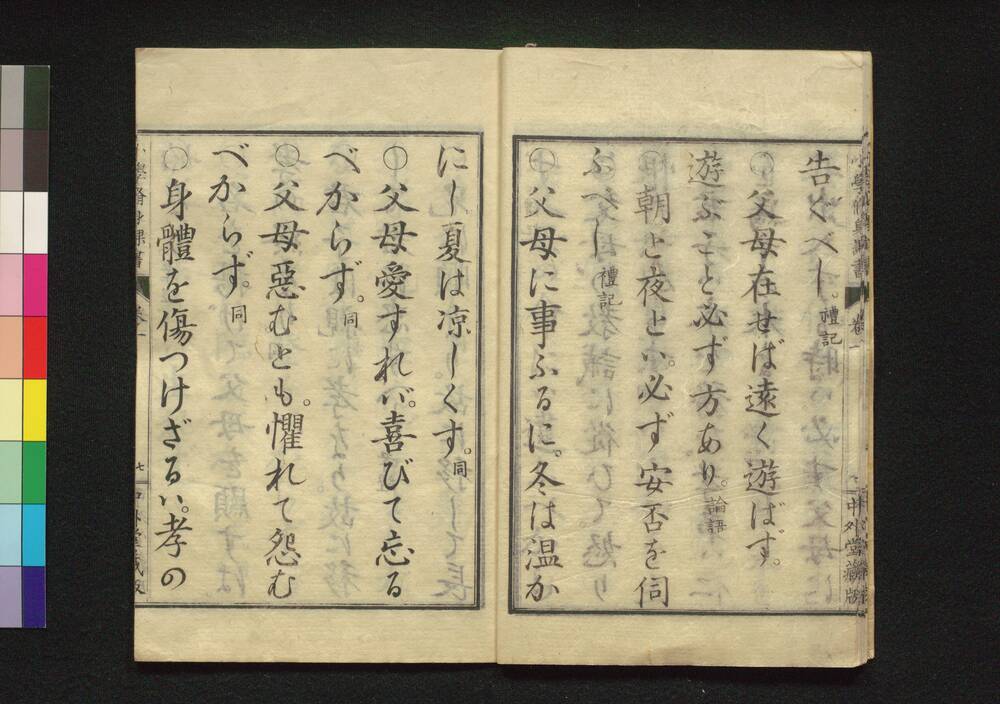 告ぐべし。禮記
○父母在せば遠く遊ばず。
遊ぶこと必ず方あり。論語
○朝と夜とハ。必ず安否を伺
ふべし 禮記
○父母に事ふるに。冬は温か
にし夏は凉しくす。同
○父母愛すれバ。喜びて忘る
べからず。同
○父母惡むとも。懼れて怨む
べからず。同
○身體を傷つけざるハ。孝の
小學脩身課書
卷一
七
中外堂藏版